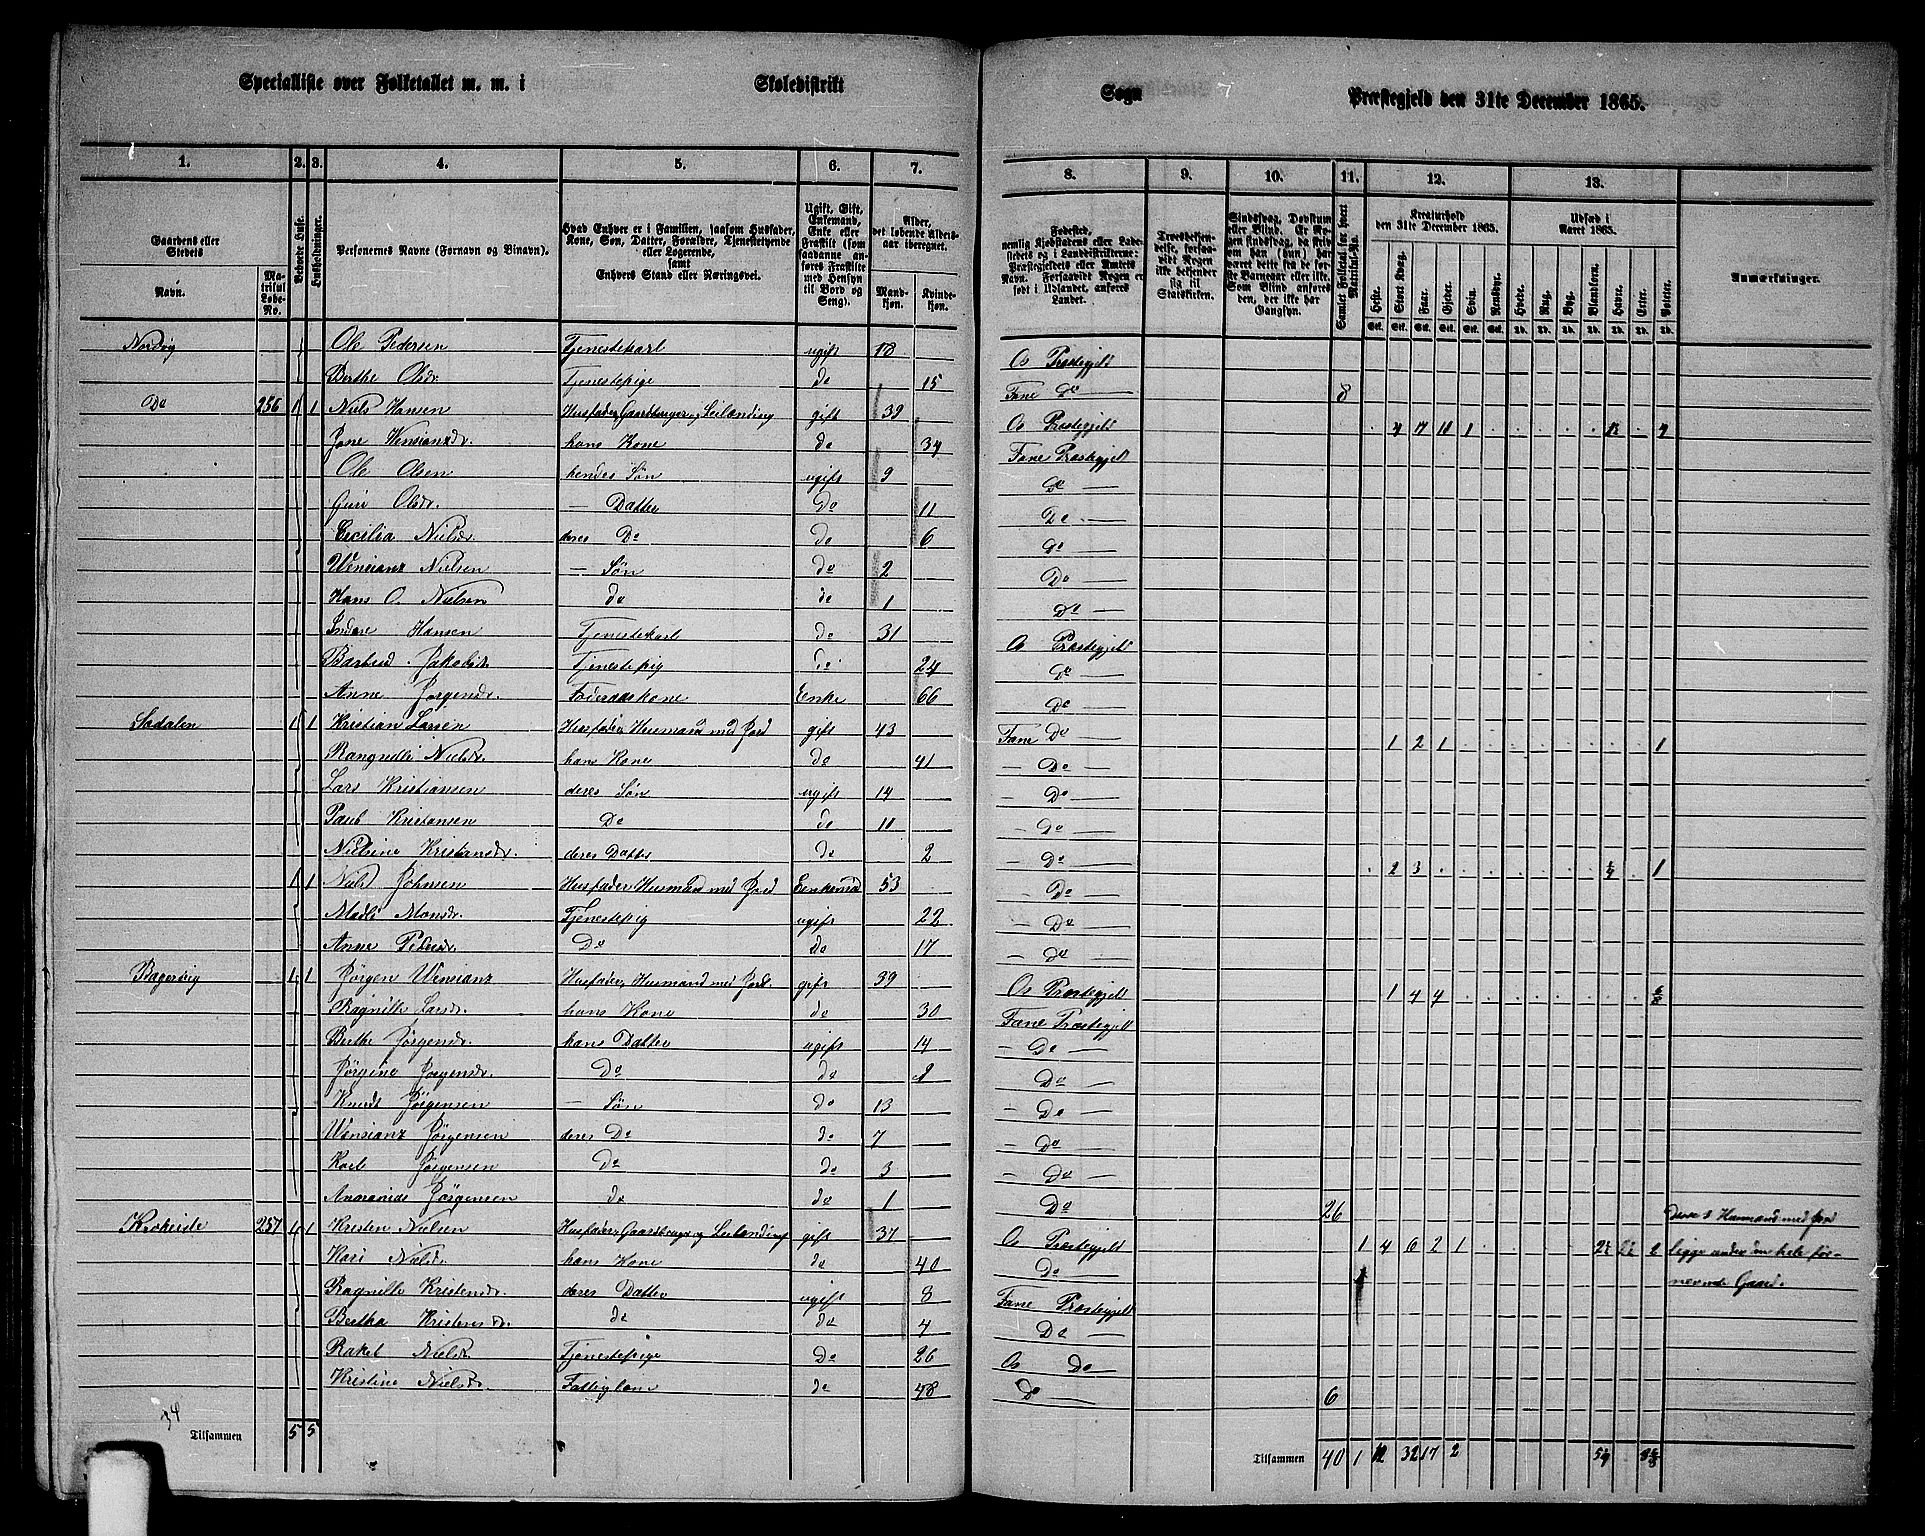 Specialliste over Folketallet m. m. i Skoledistrikt
Sogn Præstegjeld den 31te December 1865.
1. 2. 3. 4. 5. 6. 7.
8. 9. 10. 11. 12. 13.
Gaardens eller Stedets Navn.
Matrikul Løbe-No.
Beboede Huse.
Husholdninger.
Personernes Navne (Fornavn og Binavn).
Hvad Enhver er i Familien, saasom Husfader, Kone, Søn, Datter, Forældre, Tjenestetyende eller Logerende, samt Enhvers Stand eller Næringsvei.
Ugift, Gift, Enkemand, Enke eller Fraskilt (som saadanne anføres Fraskilte med Hensyn til Bord og Seng).
Alder, det løbende Alders-aar iberegnet.
Mandkøn. Kvindekøn.
Fødested, nemlig Kjøbstadens eller Ladestedets og i Landdistrikterne: Præstegjeldets eller Amtets Navn. Forsaavidt Nogen er født i Udlandet, anføres Landet.
Troesbekjendelse, forsaavidt Nogen ikke bekjender sig til Statskirken.
Sindssvag, Døvstum eller Blind.
Samlet Folketal for hvert Matrikul-No.
Kreaturhold den 31te December 1865.
Udsæd i Aaret 1865.
Heste. Stort Kvæg. Faar. Gjeder. Svin. Rensdyr. Hvede. Rug. Byg. Blandkorn. Havre. Erter. Poteter.
Anmærkninger.
Nordvig Ole Pedersen Tjenestekarl ugift 18 Os Præstegjeld
Berthe Olsdr. Tjenestepige do 15 Fane Do 8
Do 256 1 1 Niels Hansen Husfader Gaardbruger, Leilænding gift 39 Os Præstegjeld
hans Kone do 34 Fane Præstegjeld
Ole Olsen hendes Søn ugift 9 Do
Guri Olsdr. — Datter Do 11 Do
Cecilia Nielsdr. deres Do do 6 Do
Wensianz Nielsen — Søn do 2 Do
Hans O. Nielsen do do 1 Do
Hansen Tjenestekarl do 31 Os Præstegjeld
Jakobsdr. Tjenestepig do 24 Do
Anne Jørgensdr. Føderaadskone Enke 66 Do
Sædalen 1 1 Kristian Larsen Husfader Husmand med Jord gift 43 Fane Do 1 2 1 1
Rangnille Nielsdr. hans Kone do 41 Do
Lars Kristiansen deres Søn ugift 14 Do
Kristiansen Do do 11 Do
Nielsine Kristiansdr. deres Datter do 2 Do
1 1 Niels Johnsen Husfader Husmand med Jord Enkemand 53 Do 2 3 1
Madli Monsdr. Tjenestepig ugift 22 Do
Anne Pedersdr. Do do 17 Do
1 1 Jørgen Wensianz Husfader Husmand med Jord gift 39 Os Præstegjeld 1 4 4
Ragnille Larsdr. hans Kone do 30 Fane Præstegjeld
Berthe Jørgensdr. hans Datter ugift 14 Do
Jørgine Jørgensdr. Do do Do
Knud Jørgensen — Søn do 13 Do
Wensianz Jørgensen deres Do do 7 Do
Karl Jørgensen Do do 3 Do
Jørgensen do do 1 Do 26
Krokeide 257 1 1 Kristen Nielsen Husfader Gaardbruger og Leilænding gift 37 Os Præstegjeld 1 4 6 2 1
Kari Nielsdr. hans Kone do 40 Do
Ragnille Kristensdr. deres Datter ugift 8 Fane Præstegjeld
Bertha Kristensdr. do do 4 Do
Rakel Nielsdr. Tjenestepige Do 26 Os Do
Kristine Nielsdr. Fattiglem do 48 Do 6
Disse 3 Husmænd med Jord
ligge under den hele
nævnte Gaard
34
Tilsammen 5 5
Tilsammen 40 1 12 32 17 2